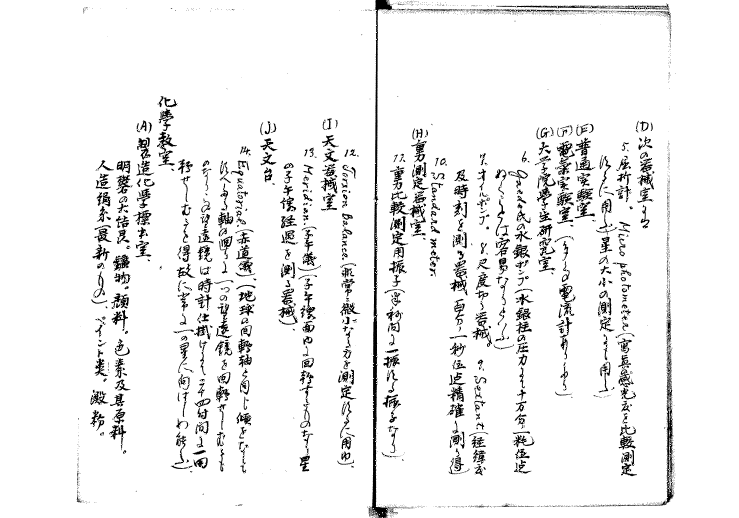 (D) 次の器械室にある
5. 屈折計、Micro photometer (寫真感光度を比較測定
するに用ふ) 星の大小の測定にも用ふ)
(E) 普通実験室、
(F) 電気実験室、(多くの電流計ありたり)
(G) 大学院學生研究室、
6. Gaede氏の水銀ポンプ (水銀柱の圧力にて十万分一粍位迄
ぬくことは容易なりといふ)
7. オイルポンプ。 8. 尺度切り器械。 9. Sextant (経緯度
及時刻を測る器械 百分一秒位迄精確に測り得)
10. Standard meter.
(H) 重力測定器械室、
11. 重力比較測定用振子 (実秒間に一振する振子なり)、
12. Torsion Balance (非常に微小なる力を測定するに用ゆ)、
(I) 天文器械室
13. Meridian. (子午儀) (子午線面内に回転するものなり 星
の子午線経過を測る器械)
(J) 天文台、
14. Equatorial. (赤道儀) (地球の回轉軸と同じ傾をなし
軸の周りに一つの望遠鏡を回轉せしむる
もの 望遠鏡は時計仕掛けにて二十四时間に一回
轉せしむるを得 故に常に一の星に向はしめ能ふ)
化學教室、
(A) 製造化學標本室、
明礬の大結晶。鑛物。顔料。色素及其原料。
人造絹糸 (最新のもの)、ペイント類。澱粉。